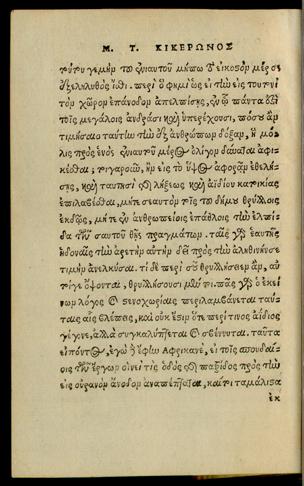 Μ. Τ. ΚΙΚΕΡΩΝΟΣ
τούτου γε μὴν τοῦ ἐνιαυτοῦ μήπω τὸ εἰκοστὸν μέρος
ἐξεληλυθὸς ἴσθι. περὶ ὃ φημὶ ὡς εἰ τὴν εἰς τουτονὶ
τὸν χῶρον ἐπάνοδον ἀπελπίσῃς, ἐν ᾧ πάντα ἐστὶ
τοῖς μεγάλοις ἀνδράσι καὶ ὑπερέχουσι, πόσου ἂν
τιμήσαιο ταύτην τὴν ἐξ ἀνθρώπων δόξαν, ἣ μό-
λις πρὸς ἑνὸς ἐνιαυτοῦ μέρος ὀλίγον δύναται ἀφι-
κέσθαι; τοιγαροῦν, ἢν εἰς τὸ ὕψος ἀφορᾶν ἐθελή-
σῃς, καὶ ταυτησὶ τῆς λήξεως καὶ ἀϊδίου κατοικίας
ἐπιλαβέσθαι, μήτε σεαυτὸν τοῖς τοῦ δήμου θρύλλοις
ἐκδῷς, μήτε ἐν ἀνθρωπείοις ἐπάθλοις τὴν ἐλπί-
δα τῶν σαυτοῦ θῇς πραγμάτων. ταῖς γὰρ ἑαυτῆς
ἡδοναῖς τὴν ἀρετὴν αὐτὴν δεῖ πρὸς τὴν ἀληθινήν σε
τιμὴν ἀνελκῦσαι. τί δὲ περὶ σοῦ θρυλλήσειεν ἂν, αὐ-
τοί γε ὄψονται, θρυλλήσουσι μέντοι. πᾶς γὰρ ὁ ἐκεί-
νων λόγος καὶ στενοχωρίαις περιλαμβάνεται ταύ-
ταις αἷς βλέπεις, καὶ οὐκ ἔστιν ὅτε περί τινος ἀΐδιος
γέγονε, ἀλλὰ συγκαλύπτεται καὶ σβέννυται. ταῦτα
εἰπόντος, ἐγὼ δὲ ἔφην Ἀφρικανὲ, εἰ τοῖς σπουδαί-
οις τῶν ἔργων οἱονεί τις ὁδὸς καὶ παστίδος πρὸς τὴν
εἰς οὐρανὸν ἄνοδον ἀναπέπταται, καίτοι τὰ μάλιστα
ἐκ